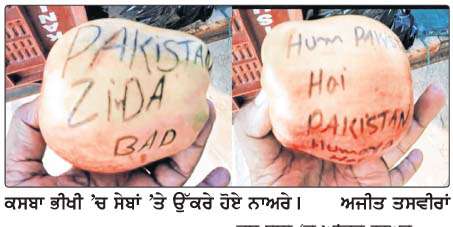 PAKISTAN
ZiDA
BAD
Hum PAKIS
Hai
PAKISTAN
Humara
ਕਸਬਾ ਭੀਖੀ ’ਚ ਸੇਬਾਂ ’ਤੇ ਉੱਕਰੇ ਹੋਏ ਨਾਅਰੇ। ਅਜੀਤ ਤਸਵੀਰਾਂ